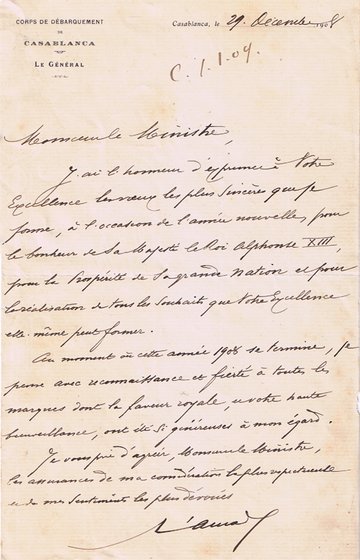 CORPS DE DÉBARQUEMENT
DE
CASABLANCA
LE GÉNÉRAL
Casablanca, le 29 Décembre 1908
C. 7.1.09.
Monsieur le Ministre,
J'ai l'honneur d'exprimer à Votre
Excellence les vœux les plus sincères que je
forme, à l'occasion de l'année nouvelle, pour
le bonheur de Sa Majesté le Roi Alphonse XIII,
pour la Prospérité de Sa grande Nation et pour
la réalisation de tous les souhaits que Votre Excellence
elle-même peut former.
Au moment où cette année 1908 se termine, je
pense avec reconnaissance et fierté à toutes les
marques dont la faveur royale, et votre haute
bienveillance, ont été si généreuses à mon égard.
Je vous prie d'agréer, Monsieur le Ministre,
les assurances de ma considération la plus respectueuse
et de mes sentiments les plus dévoués
d'Amade